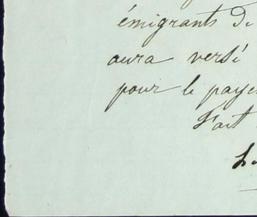 émigrants de
aura versé
pour le paye
Fait